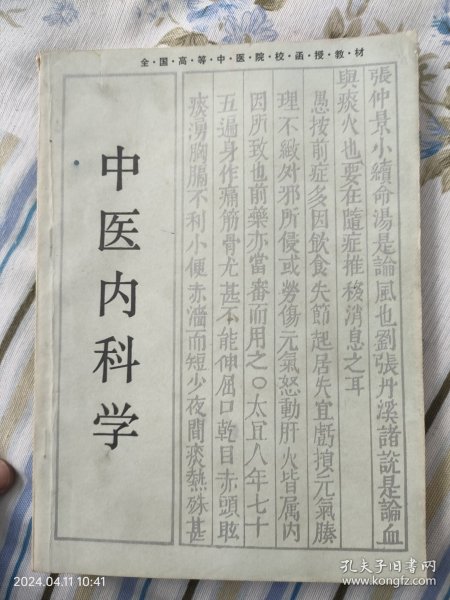 全·国·高·等·中·医·院·校·函·授·教·材
中医内科学
張仲景小續命湯是論風也劉張丹溪諸說是論血
與痰火也要在隨症推移消息之耳
愚按前症多因飲食失節起居失宜虧損元氣腠
理不緻外邪所侵或勞傷元氣怒動肝火皆属内
因所致也前藥亦當審而用之○太宜人年七十
五遍身作痛筋骨尤甚不能伸屈口乾目赤頭眩
痰湧胸膈不利小便赤濇而短少夜間痰熱殊甚
2024.04.11 10:41
孔夫子旧书网
www.kongfz.com